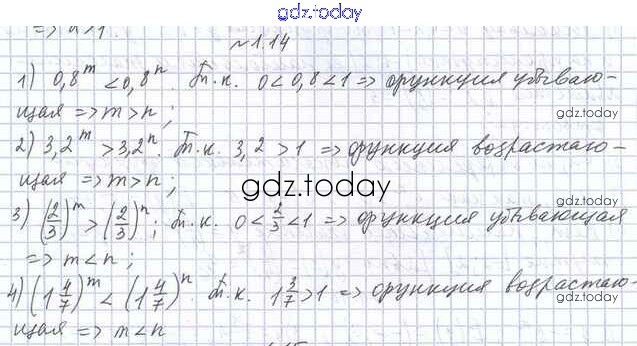 gdz.today
=> a>1.
№1.14
1) 0,8^m < 0,8^n. Т.к. 0<0,8<1 => функция убываю-
щая => m>n;
gdz.today
2) 3,2^m > 3,2^n. Т.к. 3,2>1 => функция возрастаю-
щая => m>n;
gdz.today
gdz.today
3) (2/3)^m > (2/3)^n; Т.к. 0<2/3<1 => функция убывающая
=> m<n;
4) (1 4/7)^m < (1 4/7)^n. Т.к. 1 3/7>1 => функция возрастаю-
gdz.today
щая => m<n